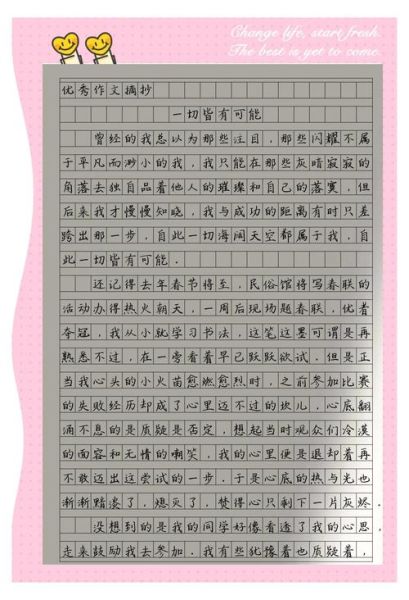 Change life, start fresh.
The best is yet to come.
优秀作文摘抄
一切皆有可能
曾经的我总以为那些注目，那些闪耀不属
于平凡而渺小的我，我只能在那些灰暗寂寂的
角落去独自品着他人的璀璨和自己的落寞，但
后来我才慢慢知晓，我与成功的距离有时只差
跨出那一步，自此一切海阔天空都属于我，自
此一切皆有可能．
还记得去年春节将至，民俗馆将写春联的
活动办得热火朝天，一周后现场题春联，优者
夺冠，我从小就学习书法，这笔这墨可谓是再
熟悉不过，在一旁看着早已跃跃欲试．但是正
当我心头的小火苗愈燃愈烈时，之前参加比赛
的失败经历却成了心里迈不过的坎儿，心底翻
涌不息的是质疑是否定，想起当时观众们冷漠
的面容和无情的嘲笑，我的心里便是退却着再
不敢迈出这尝试的一步．于是心底的热与光也
渐渐黯淡了，熄灭了，焚得心只剩下一片灰烬．
没想到的是我的同学好像看透了我的心思，
走来鼓励我去参加．我有些犹豫着也质疑着，